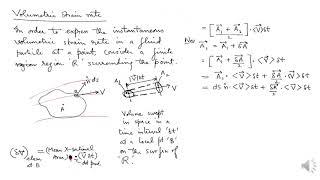 Volumetric Strain rate
In order to express the instantaneous
volumetric strain rate in a fluid
particle at a point, consider a finite
region region 'R' surrounding the point.
n̂ ds
V
A
B
|V|δt
A₁
A₂
Volume swept
in space in a
time interval 'δt'
at a local pt 'B'
on the surface of
'R'.
elem
at B
= (Mean X-sectional
Area)
(Vδt)
= [A₁ + A₂ / 2] · <V>δt
A₂ = A₁ + δA
= [A₁ + A₁ + δA / 2] · <V>δt
= A₁ · <V>δt + δA/2 · <V>δt
= ds n̂ · <V>δt + δA/2 · <V>δt